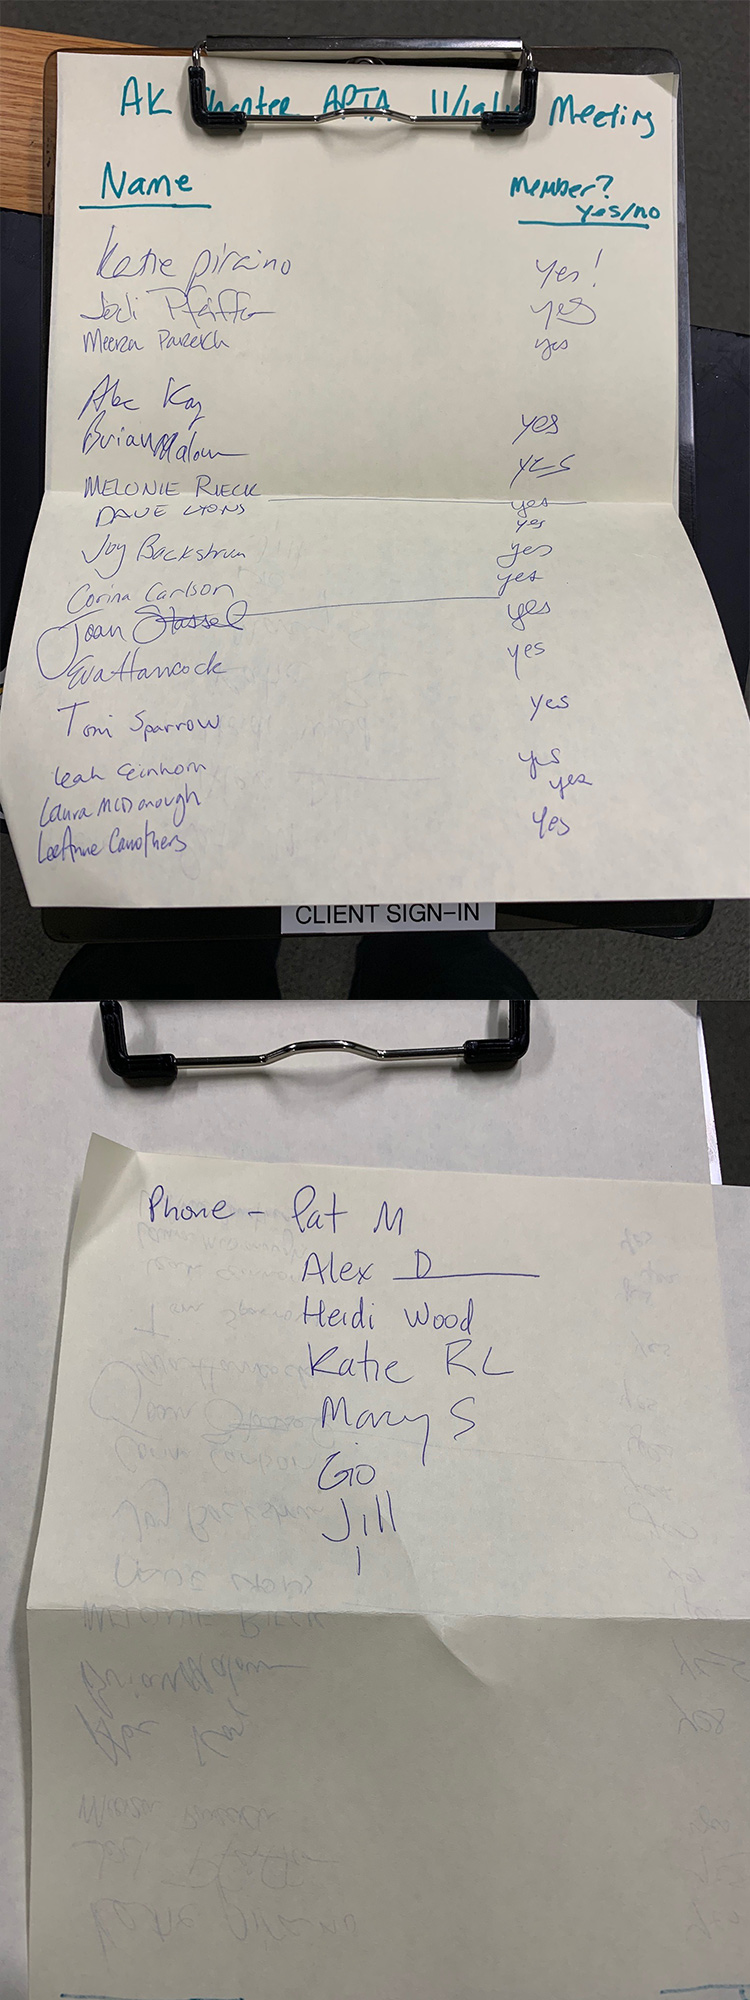 AK Chapter APTA 11/19/ Meeting
Name Member? yes/no
Katie Piraino Yes!
Jodi Pfeiffer yes
Meera Parekh yes
Abe Kay yes
Brian Malown yes
MELONIE RIECK yes
DAVE LYONS yes
Joy Backstrum yes
Corina Carlson yes
Joan Stassel yes
Eva Hancock yes
Toni Sparrow yes
Leah Einhorn yes
Laura McDonough yes
LeeAnne Carrothers Yes
CLIENT SIGN-IN
Phone - Pat M
Alex D
Heidi Wood
Katie RL
Mary S
Gio
Jill